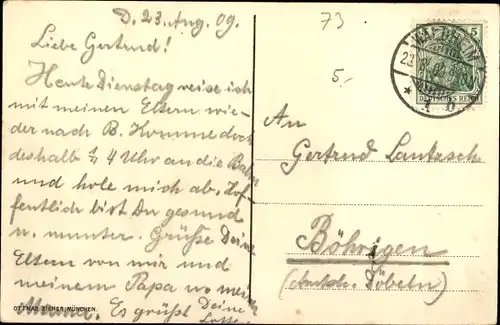 D. 23. Aug. 09.
Liebe Gertrud!
Heute Dienstag reise ich
mit meinen Eltern wie-
der nach B. Komme doch
deshalb 1/4 4 Uhr an die Bahn
und hole mich ab. Hof-
fentlich bist Du gesund
u. munter. Grüße Deine
Eltern von mir und
meinem Papa u. meiner
Mama. Es grüßt Deine
Lotte
OTTMAR ZIEHER, MÜNCHEN.
73
5.-
5
DEUTSCHES REICH
An
Gertrud Lantzsch
Böhrigen
(Amtsh. Döbeln)